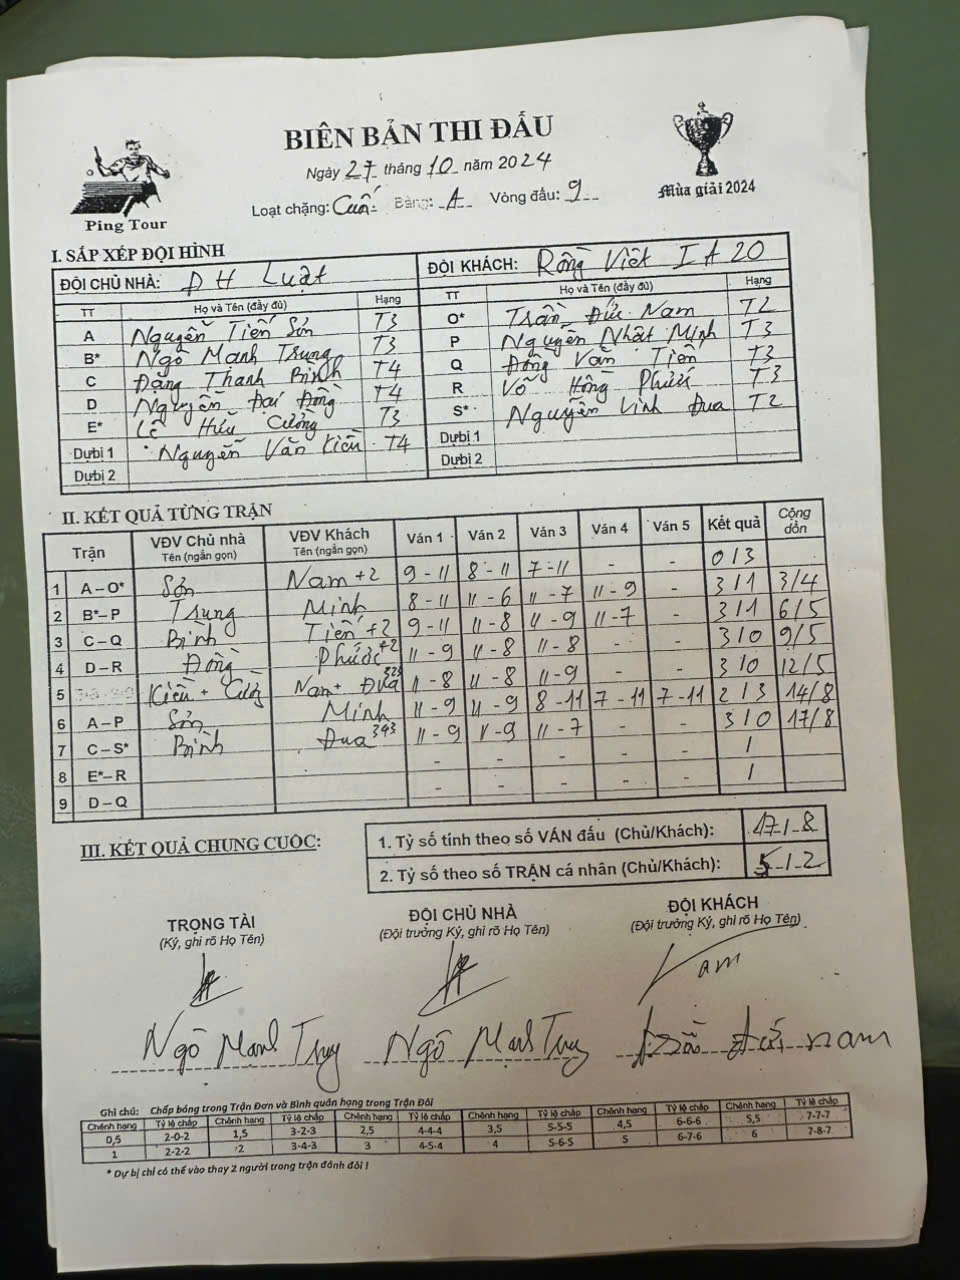 BIÊN BẢN THI ĐẤU
Ngày 27 tháng 10 năm 2024
Loạt chặng: Cuối Bảng: A Vòng đấu: 9
Ping Tour
Mùa giải 2024
I. SẮP XẾP ĐỘI HÌNH
ĐỘI CHỦ NHÀ: ĐH Luật ĐỘI KHÁCH: Rồng Việt I A20
TT Họ và Tên (đầy đủ) Hạng TT Họ và Tên (đầy đủ) Hạng
A Nguyễn Tiến Sơn T3 O* Trần Đức Nam T2
B* Ngô Mạnh Trung T3 P Nguyễn Nhật Minh T3
C Đặng Thanh Bình T4 Q Đồng Văn Tiến T3
D Nguyễn Đại Đồng T4 R Võ Hồng Phước T3
E* Lê Hữu Cường T3 S* Nguyễn Vinh Đua T2
Dựbị 1 Nguyễn Văn Kiều T4 Dựbị 1
Dựbị 2 Dựbị 2
II. KẾT QUẢ TỪNG TRẬN
Trận VĐV Chủ nhà Tên (ngắn gọn) VĐV Khách Tên (ngắn gọn) Ván 1 Ván 2 Ván 3 Ván 4 Ván 5 Kết quả Cộng dồn
1 A – O* Sơn Nam +2 9 - 11 8 - 11 7 - 11 - - 0 / 3
2 B* – P Trung Minh 8 - 11 11 - 6 11 - 7 11 - 9 - 3 / 1 3/4
3 C – Q Bình Tiến +2 9 - 11 11 - 8 11 - 9 11 - 7 - 3 / 1 6/5
4 D – R Đồng Phước +2 11 - 9 11 - 8 11 - 8 - - 3 / 0 9/5
5 Kiều + Cường Nam + Đua 323 11 - 8 11 - 8 11 - 9 - - 3 / 0 12/5
6 A – P Sơn Minh 11 - 9 11 - 9 8 - 11 7 - 11 7 - 11 2 / 3 14/8
7 C – S* Bình Đua 343 11 - 9 11 - 9 11 - 7 - - 3 / 0 17/8
8 E* – R - - - - - /
9 D – Q - - - - - /
III. KẾT QUẢ CHUNG CUỘC:
1. Tỷ số tính theo số VÁN đấu (Chủ/Khách): 17 / 8
2. Tỷ số theo số TRẬN cá nhân (Chủ/Khách): 5 / 2
TRỌNG TÀI ĐỘI CHỦ NHÀ ĐỘI KHÁCH
(Ký, ghi rõ Họ Tên) (Đội trưởng Ký, ghi rõ Họ Tên) (Đội trưởng Ký, ghi rõ Họ Tên)
Nam
Ngô Mạnh Trung Ngô Mạnh Trung Trần Đức Nam
Ghi chú: Chấp bóng trong Trận Đơn và Bình quân hạng trong Trận Đôi
Chênh hạng Tỷ lệ chấp Chênh hạng Tỷ lệ chấp Chênh hạng Tỷ lệ chấp Chênh hạng Tỷ lệ chấp Chênh hạng Tỷ lệ chấp Chênh hạng Tỷ lệ chấp
0,5 2-0-2 1,5 3-2-3 2,5 4-4-4 3,5 5-5-5 4,5 6-6-6 5,5 7-7-7
1 2-2-2 2 3-4-3 3 4-5-4 4 5-6-5 5 6-7-6 6 7-8-7
* Dự bị chỉ có thể vào thay 2 người trong trận đánh đôi !